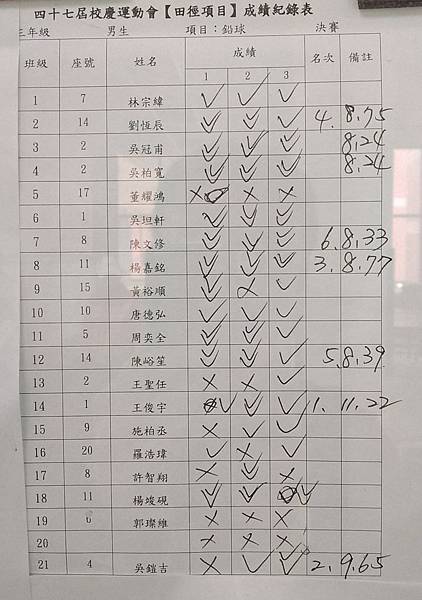 四十七屆校慶運動會【田徑項目】成績紀錄表
三年級 男生 項目：鉛球 決賽
班級 座號 姓名 成績 名次 備註
1 2 3
1 7 林宗緯
2 14 劉恆辰 4. 8.75
3 2 吳冠甫 8.24
4 2 吳柏寬 8.24
5 17 董耀鴻
6 1 吳坦軒
7 8 陳文修 6. 8.33
8 11 楊嘉銘 3. 8.77
9 15 黃裕順
10 10 唐德弘
11 5 周奕全
12 14 陳峪笙 5. 8.39
13 2 王聖任
14 1 王俊宇 1. 11.22
15 9 施柏丞
16 20 羅浩瑋
17 8 許智翔
18 11 楊竣硯
19 6 郭璨維
20
21 4 吳鎧吉 2. 9.65